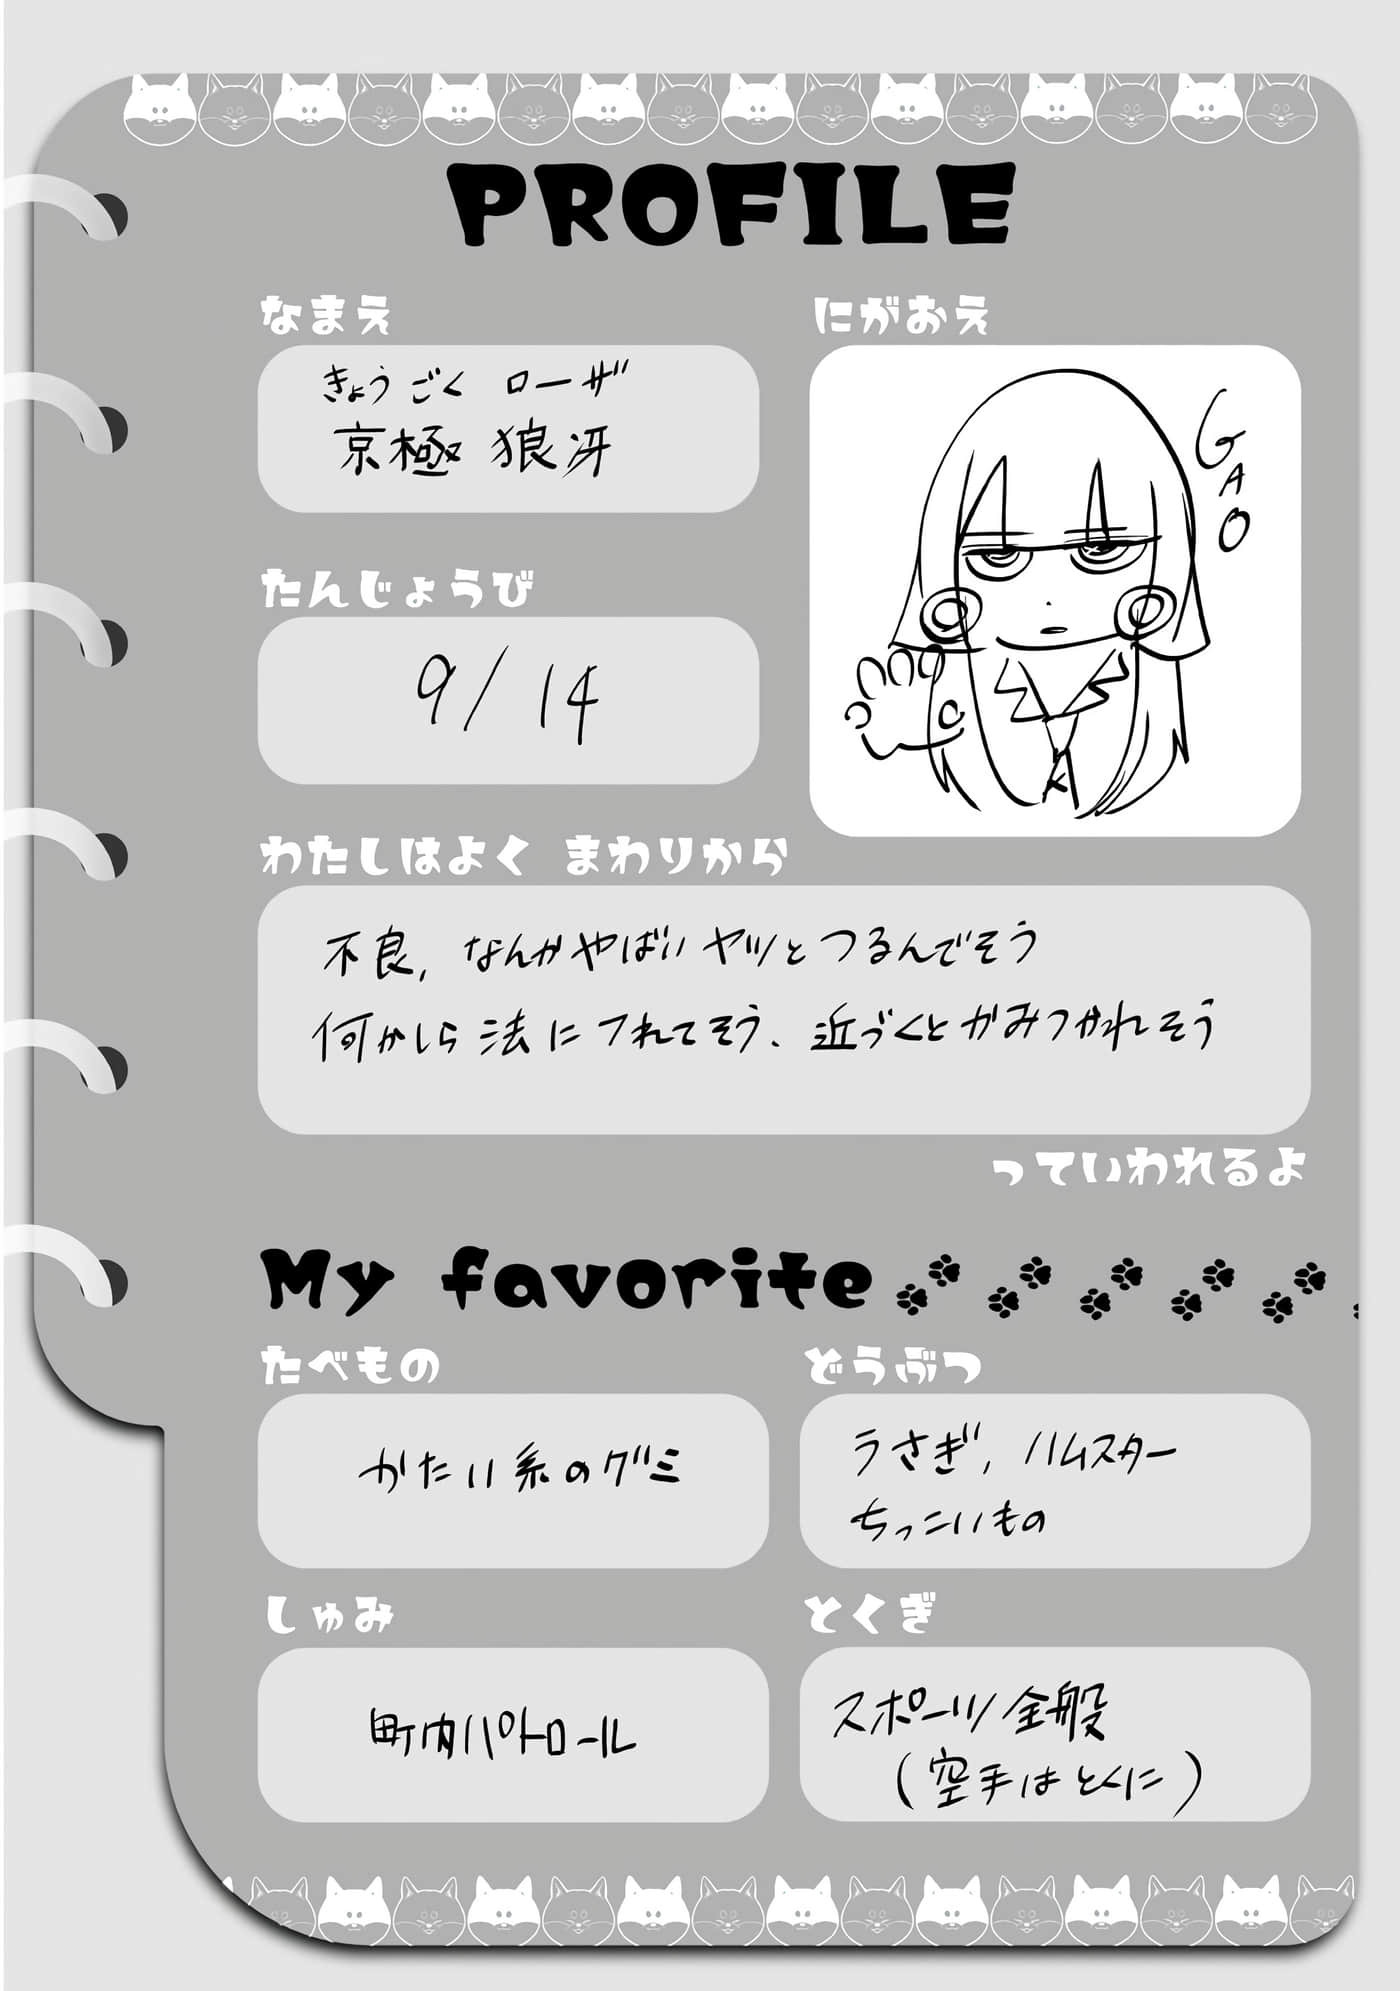 PROFILE
なまえ
きょうごく ローザ
京極 狼冴
にがおえ
GAO
たんじょうび
9/14
わたしはよく まわりから
不良, なんかやばいヤツとつるんでそう
何かしら法にふれてそう、近づくとかみつかれそう
っていわれるよ
My favorite
たべもの
かたい系のグミ
どうぶつ
うさぎ, ハムスター
ちっこいもの
しゅみ
町内パトロール
とくぎ
スポーツ全般
(空手はとくに)